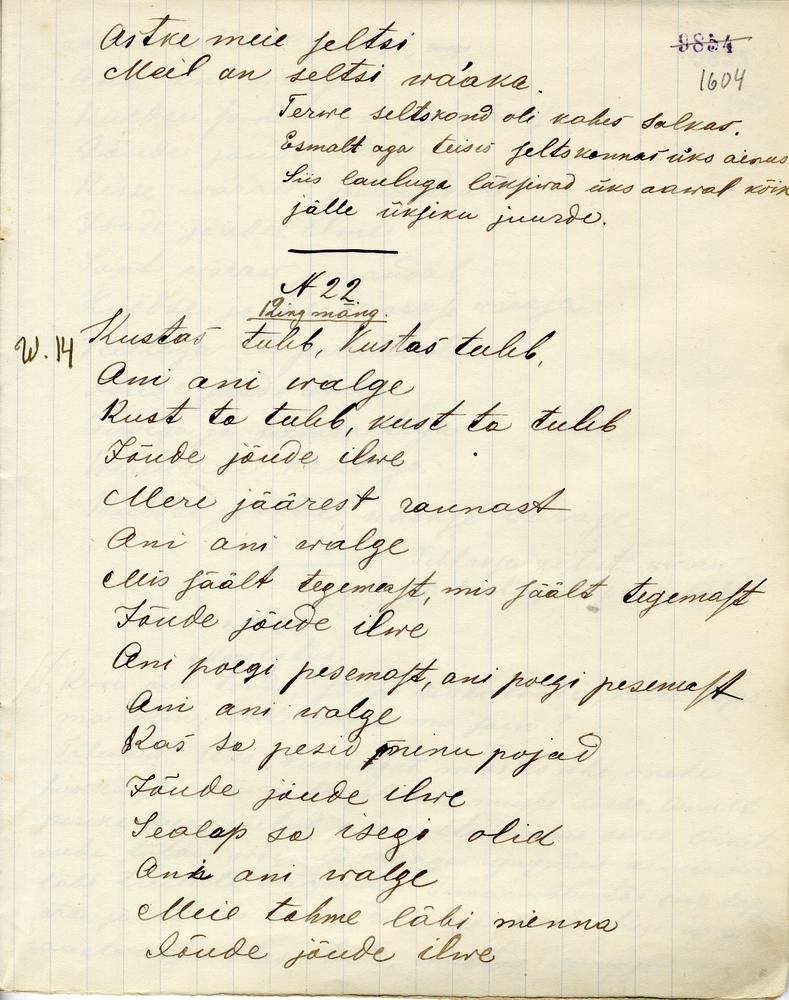 Astke meie seltsi
Meil on seltsi wääka.
9854
1604
Terwe seltskond oli kahes salkas.
Esmalt aga teises seltskonnas üks ainus
Siis lauluga läksiwad üks aawal kõik
jälle üksiku juurde.
N 22.
Ring mäng.
W. 14
Kustas tuleb, Kustas tuleb,
Ani ani walge
Kust ta tuleb, kust ta tuleb
Jõude jõude ilwe
Mere jäärest raunast
Ani ani walge
Mis säält tegemast, mis säält tegemast
Jõude jõude ilwe
Ani poegi pesemast, ani poegi pesemast
Ani ani walge
Kas sa pesid minu pojad
Jõude jõude ilwe
Sealap sa isegi olid
Ani ani walge
Meie tahme läbi minna
Jõude jõude ilwe